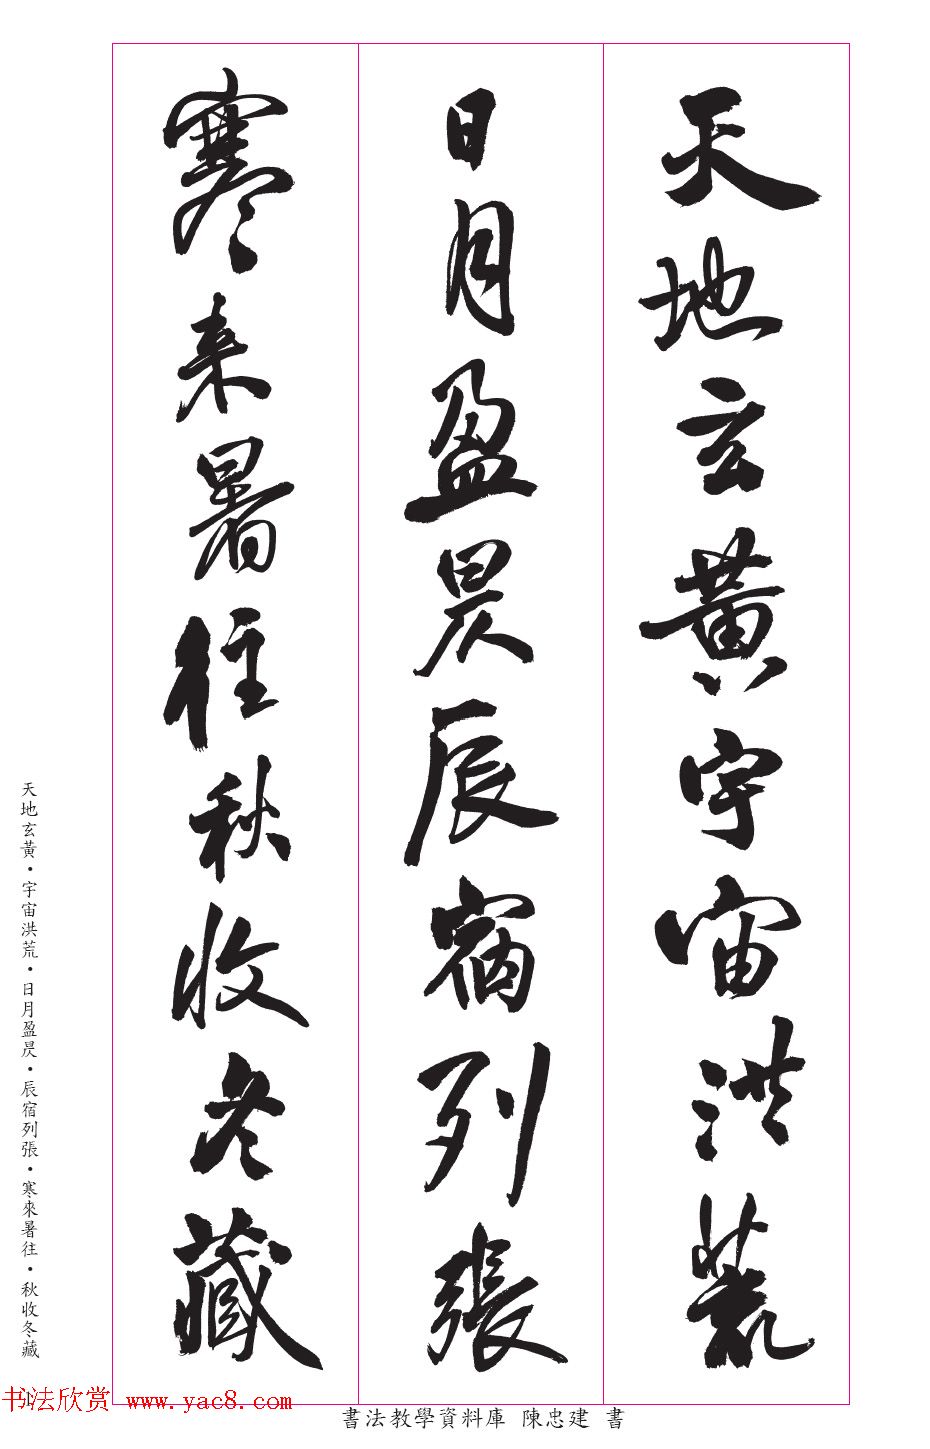 天地玄黃宇宙洪荒
日月盈昃辰宿列張
寒来暑往秋收冬藏
天地玄黃・宇宙洪荒・日月盈昃・辰宿列張・寒來暑往・秋收冬藏
书法欣赏 www.yac8.com
書法教學資料庫 陳忠建 書